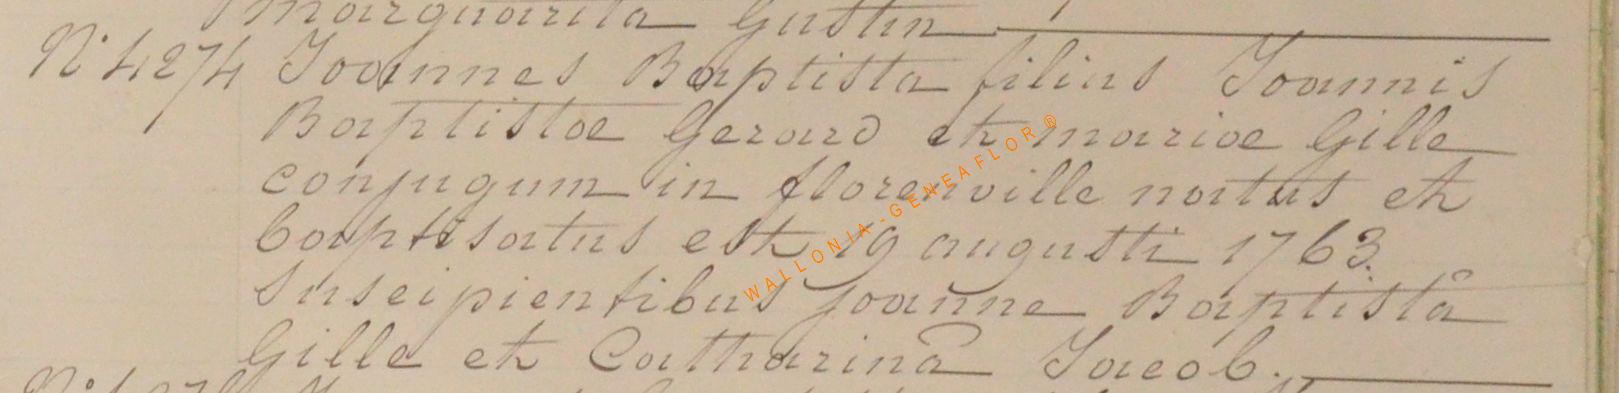 Marguarita Gustin
N° 4274 Joannes Baptista filius Joannis
Baptistae Gerard et mariae Gille
conjugum in florenville natus et
baptisatus est 19 augusti 1763.
Suscipientibus joanne Baptistâ
Gille et Catharinâ Jacob.
WALLONIA-GENEAFLOR®